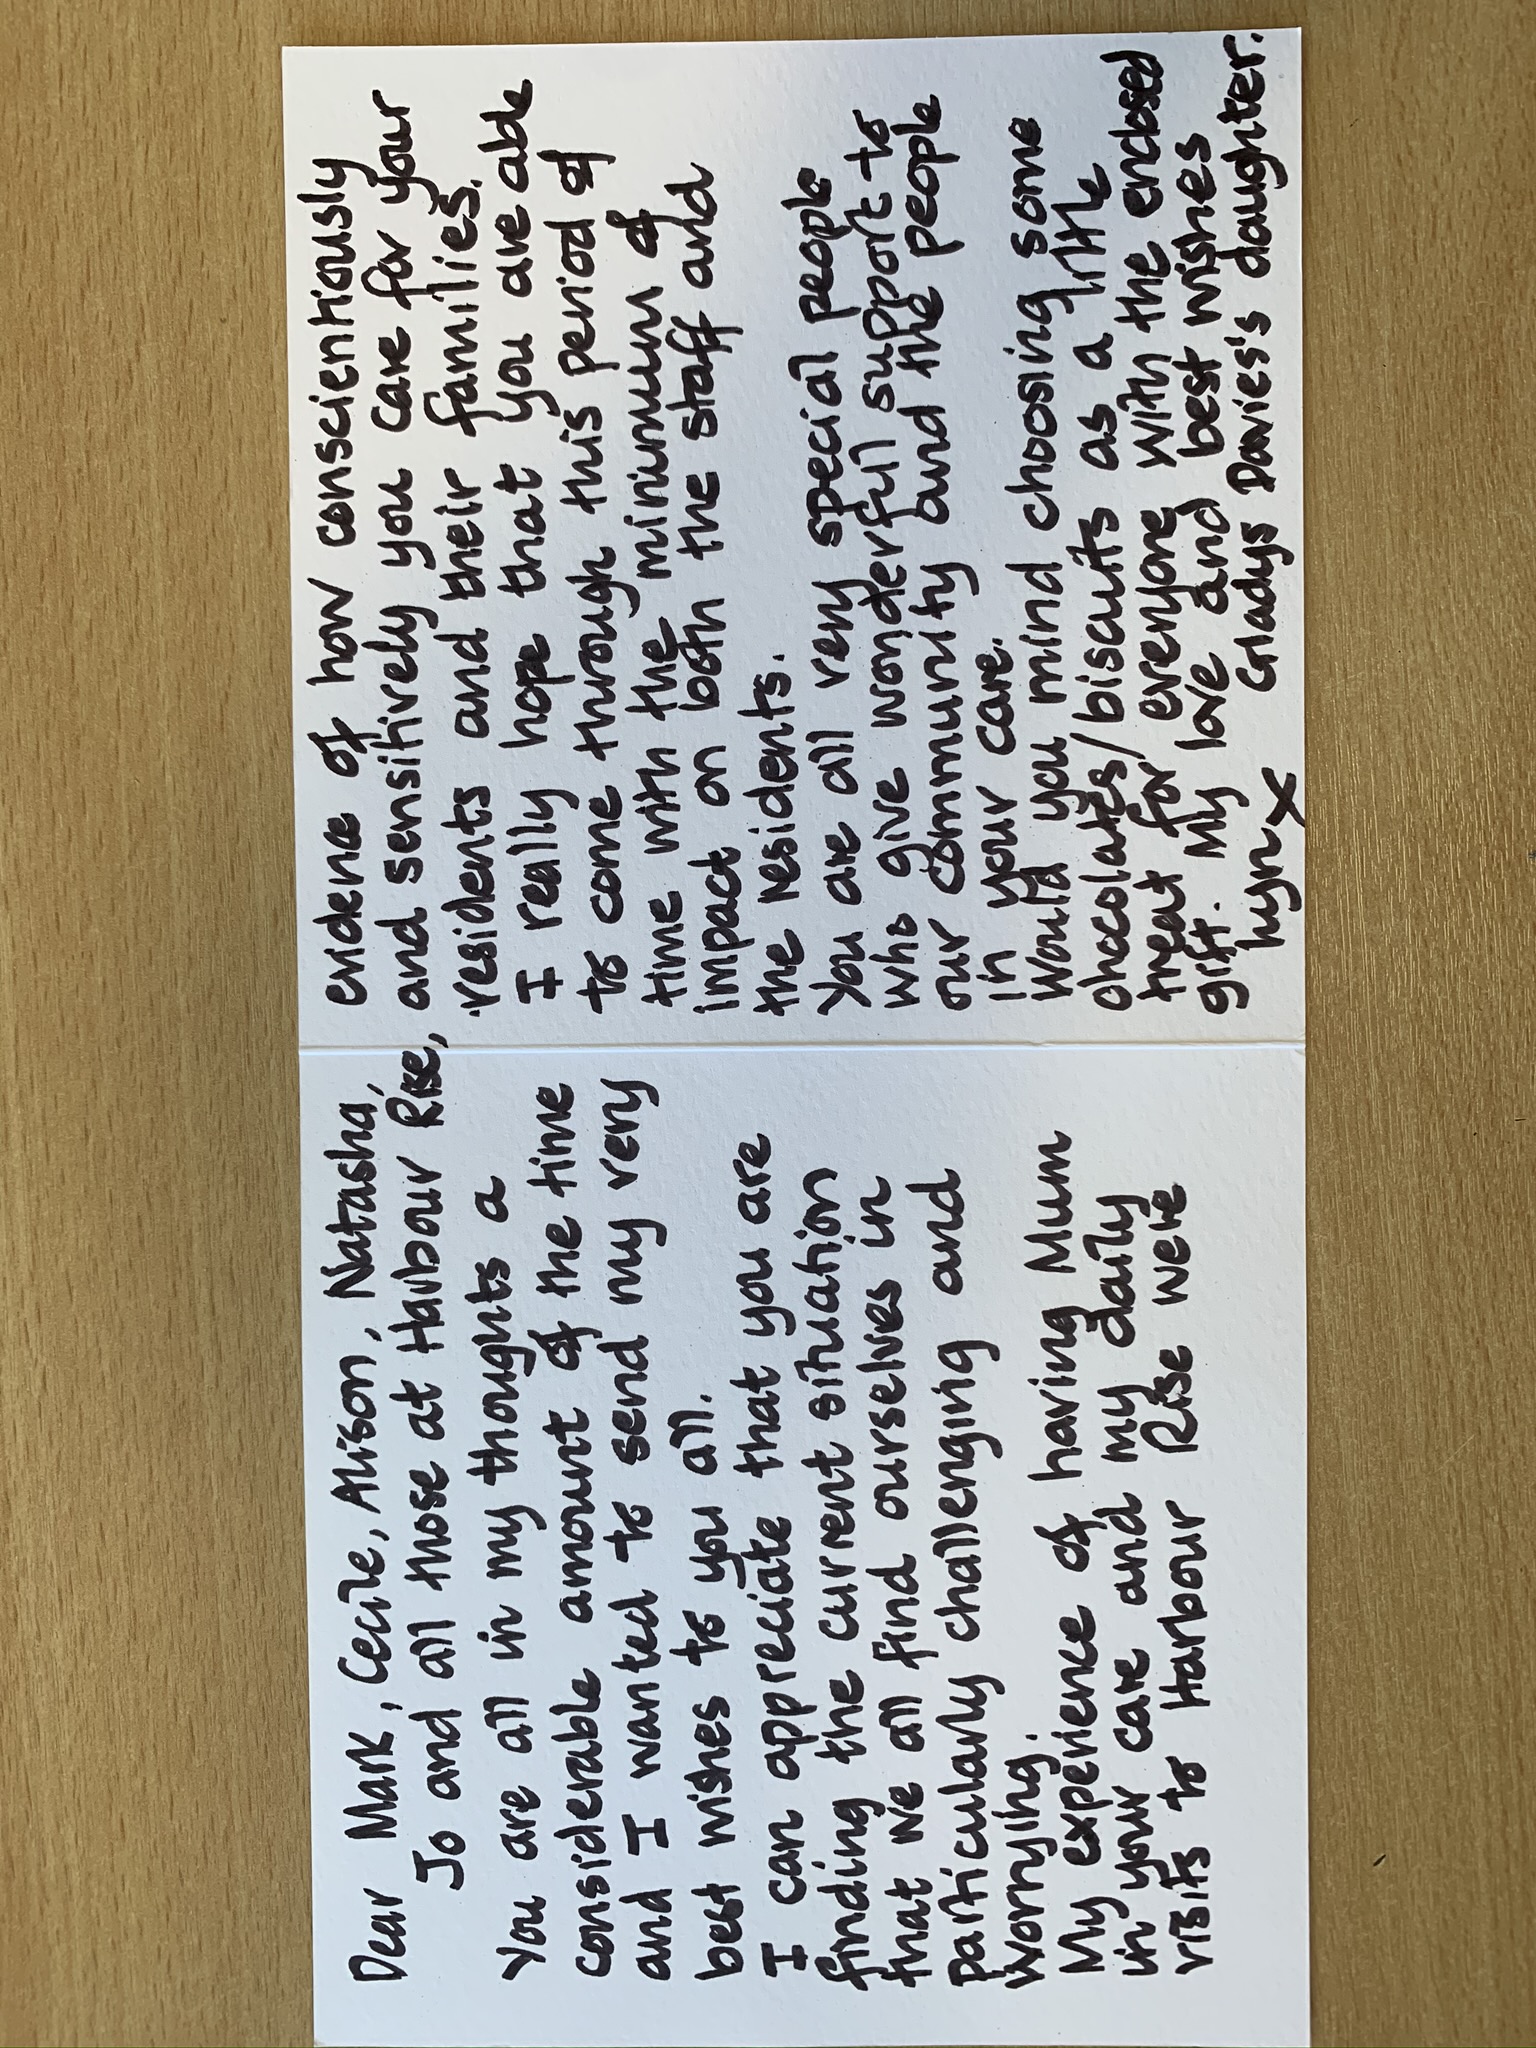 Dear Mark, Cecile, Alison, Natasha,
Jo and all those at Harbour Rise,
You are all in my thoughts a
considerable amount of the time
and I wanted to send my very
best wishes to you all.
I can appreciate that you are
finding the current situation
that we all find ourselves in
particularly challenging and
worrying.
My experience of having Mum
in your care and my daily
visits to Harbour Rise were
evidence of how conscientiously
and sensitively you care for your
residents and their families.
I really hope that you are able
to come through this period of
time with the minimum of
impact on both the staff and
the residents.
You are all very special people
who give wonderful support to
our community and the people
in your care.
Would you mind choosing some
chocolates/biscuits as a little
treat for everyone with the enclosed
gift. My love and best wishes
Lyn x Gladys Davies's daughter.